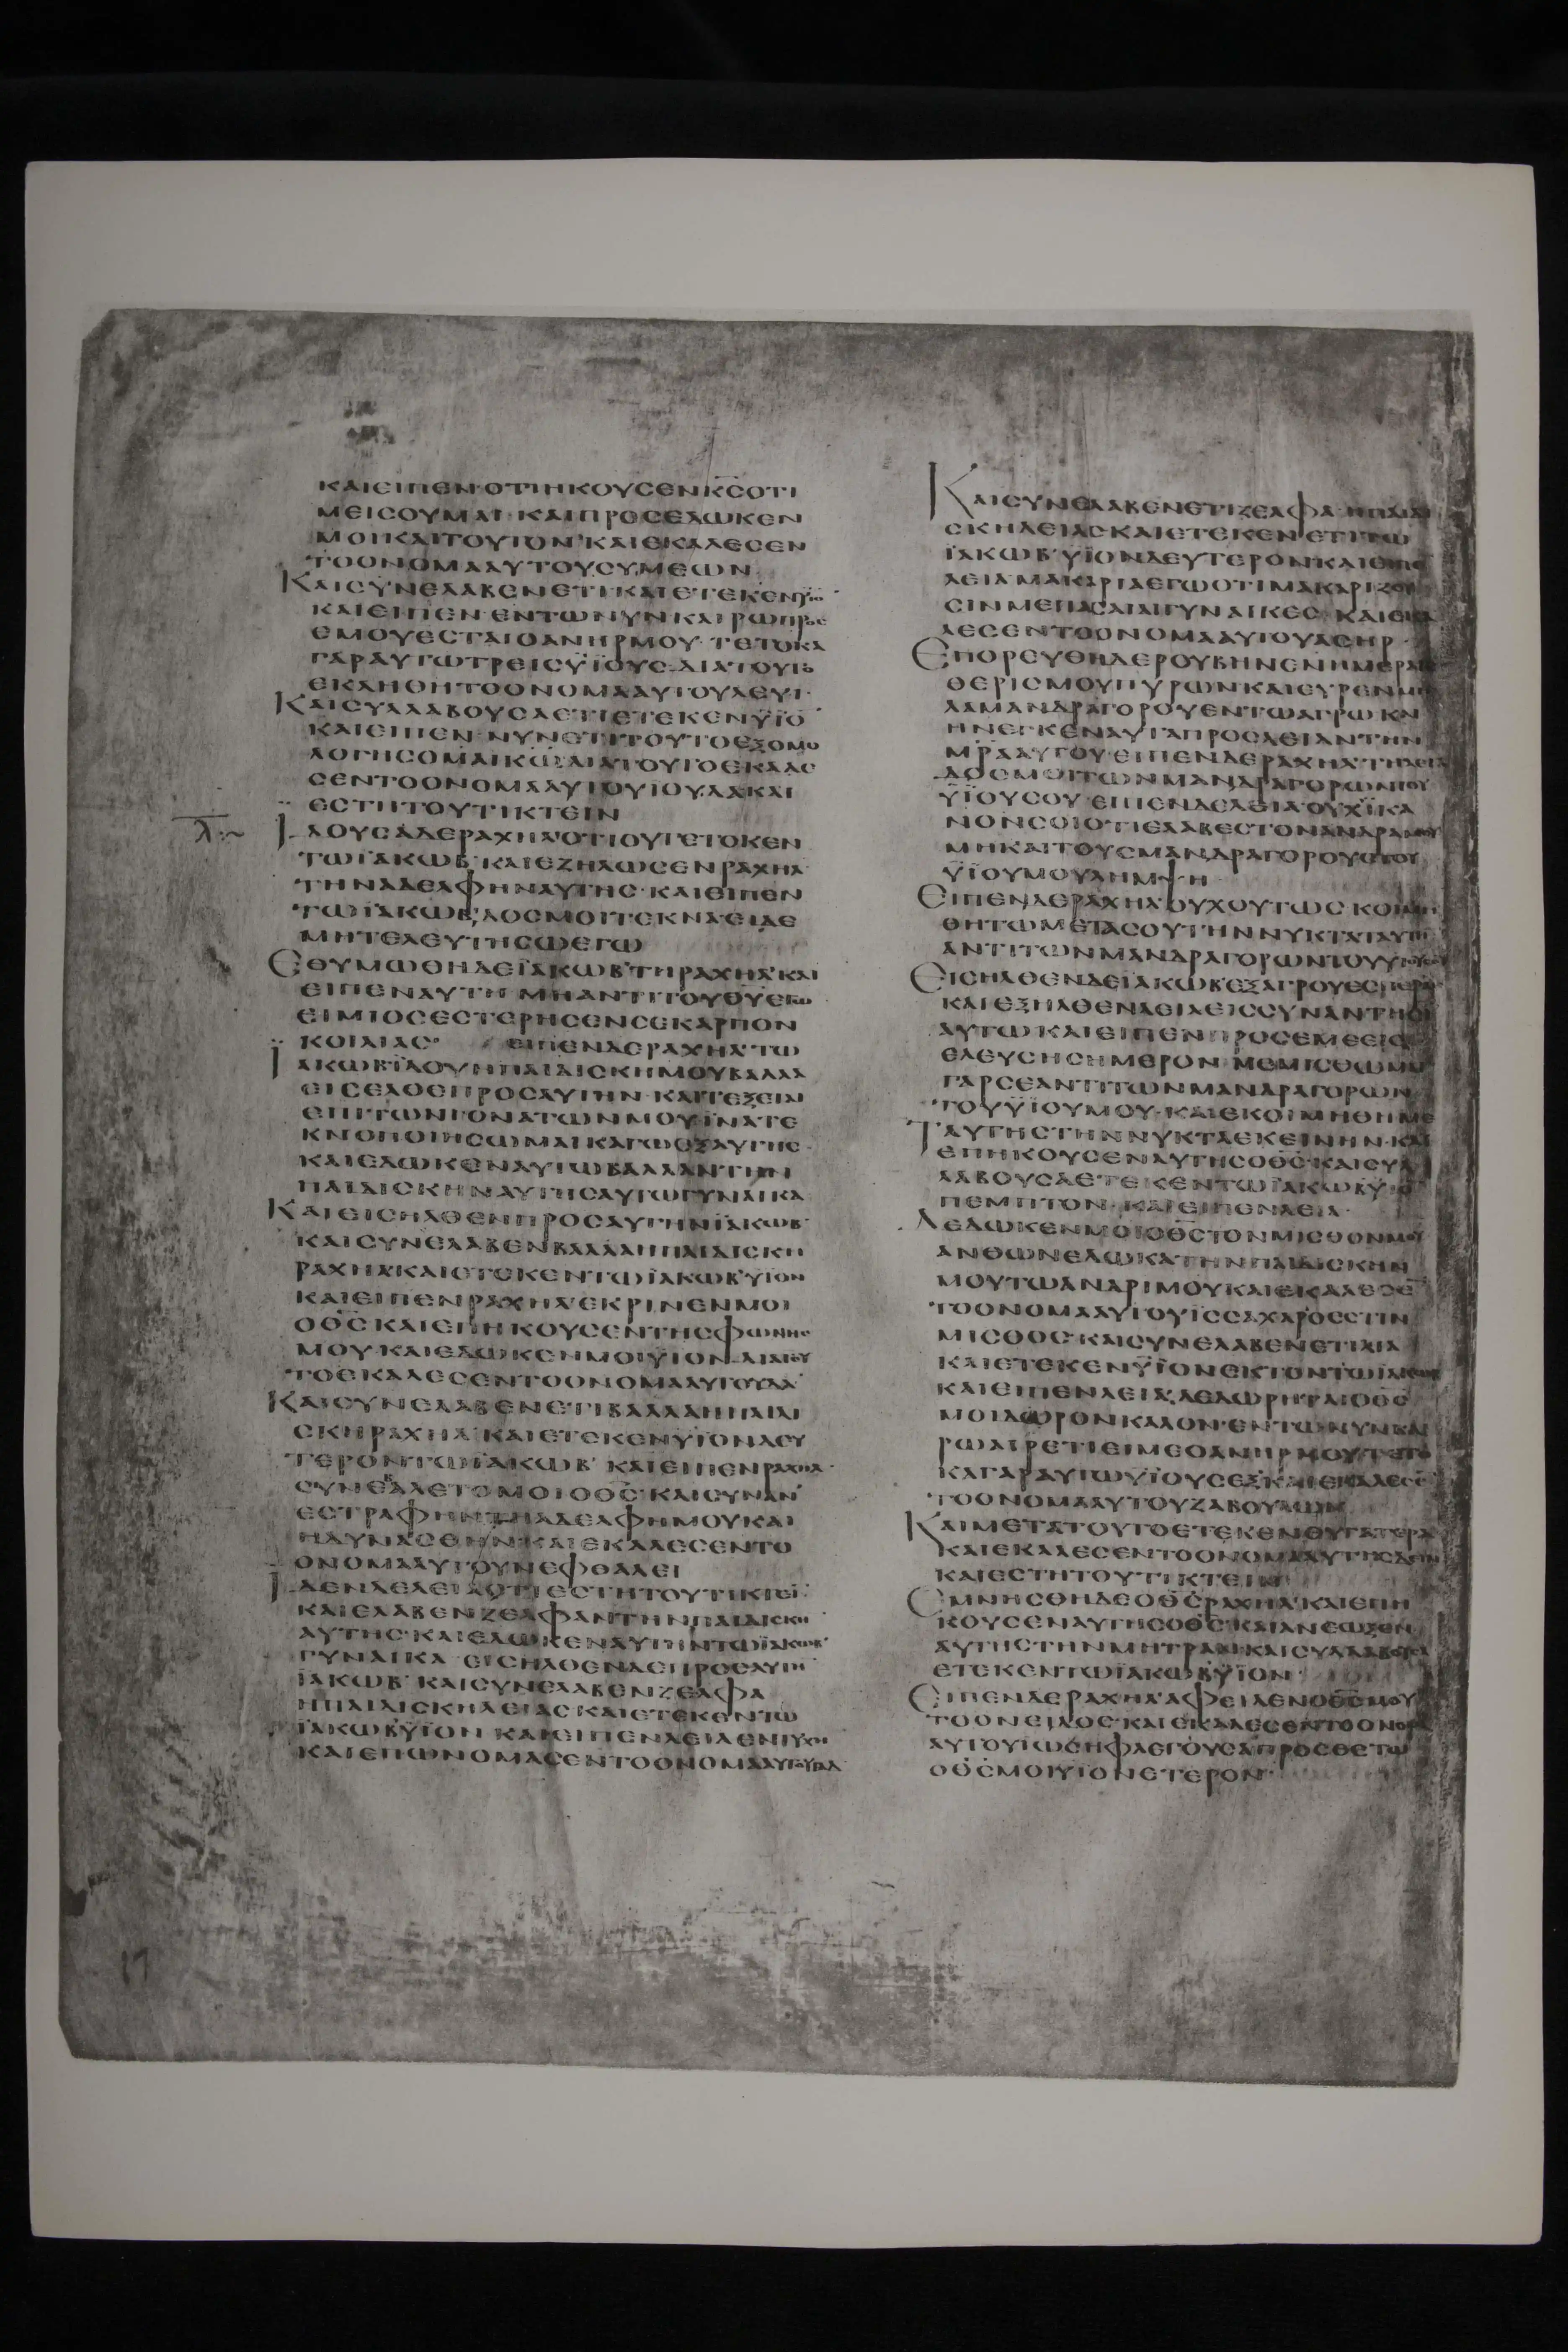 ΚΑΙΕΙΠΕΝ·ΟΤΙΗΚΟΥϹΕΝΚ̅Ϲ̅ΟΤΙ
ΜΕΙϹΟΥΜΑΙ·ΚΑΙΠΡΟϹΕΔΩΚΕΝ
ΜΟΙΚΑΙΤΟΥΤΟΝ·ΚΑΙΕΚΑΛΕϹΕΝ
ΤΟΟΝΟΜΑΑΥΤΟΥϹΥΜΕΩΝ
ΚΑΙϹΥΝΕΛΑΒΕΝΕΤΙ·ΚΑΙΕΤΕΚΕΝ
ΚΑΙΕΙΠΕΝ·ΕΝΤΩΝΥΝΚΑΙΡΩΠΡΟϹ
ΕΜΟΥΕϹΤΑΙΟΑΝΗΡΜΟΥ·ΤΕΤΟΚΑ
ΓΑΡΑΥΤΩΤΡΕΙϹΫΪΟΥϹ·ΔΙΑΤΟΥΤΟ
ΕΚΛΗΘΗΤΟΟΝΟΜΑΑΥΤΟΥΛΕΥΙ·
ΚΑΙϹΥΛΛΑΒΟΥϹΑΕΤΙΕΤΕΚΕΝΫΪΟ̅
ΚΑΙΕΙΠΕΝ·ΝΥΝΕΤΙΤΟΥΤΟΕΞΟΜΟ
ΛΟΓΗϹΟΜΑΙΚ̅Ω̅ΔΙΑΤΟΥΤΟΕΚΑΛΕ
ϹΕΝΤΟΟΝΟΜΑΑΥΤΟΥΪΟΥΔΑΚΑΙ
ΕϹΤΗΤΟΥΤΙΚΤΕΙΝ
Λ̅
ΪΔΟΥϹΑΔΕΡΑΧΗΛ᾽ΟΤΙΟΥΤΕΤΟΚΕΝ
ΤΩΪΑΚΩΒ᾽·ΚΑΙΕΖΗΛΩϹΕΝΡΑΧΗΛ
ΤΗΝΑΔΕΛΦΗΝΑΥΤΗϹ·ΚΑΙΕΙΠΕΝ
ΤΩΪΑΚΩΒ᾽ΔΟϹΜΟΙΤΕΚΝΑΕΙΔΕ
ΜΗΤΕΛΕΥΤΗϹΩΕΓΩ
ΕΘΥΜΩΘΗΔΕΪΑΚΩΒ᾽ΤΗΡΑΧΗΛ᾽ΚΑΙ
ΕΙΠΕΝΑΥΤΗ·ΜΗΑΝΤΙΤΟΥΘ̅Υ̅ΕΓΩ
ΕΙΜΙΟϹΕϹΤΕΡΗϹΕΝϹΕΚΑΡΠΟΝ
ΚΟΙΛΙΑϹ· ΕΙΠΕΝΔΕΡΑΧΗΛ᾽ΤΩ
ΪΑΚΩΒΪΔΟΥΗΠΑΙΔΙϹΚΗΜΟΥΒΑΛΛΑ
ΕΙϹΕΛΘΕΠΡΟϹΑΥΤΗΝ·ΚΑΙΤΕΞΕΤΑΙ
ΕΠΙΤΩΝΓΟΝΑΤΩΝΜΟΥΪΝΑΤΕ
ΚΝΟΠΟΙΗϹΩΜΑΙΚΑΓΩΕΞΑΥΤΗϹ·
ΚΑΙΕΔΩΚΕΝΑΥΤΩΒΑΛΛΑΝΤΗΝ
ΠΑΙΔΙϹΚΗΝΑΥΤΗϹΑΥΤΩΓΥΝΑΙΚΑ
ΚΑΙΕΙϹΗΛΘΕΝΠΡΟϹΑΥΤΗΝΪΑΚΩΒ᾽
ΚΑΙϹΥΝΕΛΑΒΕΝΒΑΛΛΑΗΠΑΙΔΙϹΚΗ
ΡΑΧΗΛ᾽ΚΑΙΕΤΕΚΕΝΤΩΪΑΚΩΒ᾽ΥΙΟΝ
ΚΑΙΕΙΠΕΝΡΑΧΗΛ᾽ΕΚΡΙΝΕΝΜΟΙ
ΟΘ̅Ϲ̅ΚΑΙΕΠΗΚΟΥϹΕΝΤΗϹΦΩΝΗϹ
ΜΟΥΚΑΙΕΔΩΚΕΝΜΟΙΫΙΟΝ·ΔΙΑΤΟΥ
ΤΟΕΚΑΛΕϹΕΝΤΟΟΝΟΜΑΑΥΤΟΥΔΑΝ
ΚΑΙϹΥΝΕΛΑΒΕΝΕΤΙΒΑΛΛΑΗΠΑΙΔΙ
ϹΚΗΡΑΧΗΛ᾽ΚΑΙΕΤΕΚΕΝΥΙΟΝΔΕΥ
ΤΕΡΟΝΤΩΪΑΚΩΒ᾽ΚΑΙΕΙΠΕΝΡΑΧΗΛ
ϹΥΝΕΒΑΛΕΤΟΜΟΙΟΘ̅Ϲ̅·ΚΑΙϹΥΝΑΝ
ΕϹΤΡΑΦΗΝΤΗΑΔΕΛΦΗΜΟΥΚΑΙ
ΗΔΥΝΑϹΘΗΝ·ΚΑΙΕΚΑΛΕϹΕΝΤΟ
ΟΝΟΜΑΑΥΤΟΥΝΕΦΘΑΛΕΙ
ΪΔΕΝΔΕΛΕΙΑΟΤΙΕϹΤΗΤΟΥΤΙΚΤΕΙ̅
ΚΑΙΕΛΑΒΕΝΖΕΛΦΑΝΤΗΝΠΑΙΔΙϹΚΗ̅
ΑΥΤΗϹ·ΚΑΙΕΔΩΚΕΝΑΥΤΗΝΤΩΪΑΚΩΒ᾽
ΓΥΝΑΙΚΑ·ΕΙϹΗΛΘΕΝΔΕΠΡΟϹΑΥΤΗ̅
ΪΑΚΩΒ᾽ΚΑΙϹΥΝΕΛΑΒΕΝΖΕΛΦΑ
ΗΠΑΙΔΙϹΚΗΛΕΙΑϹΚΑΙΕΤΕΚΕΝΤΩ
ΪΑΚΩΒ᾽ΫΪΟΝ·ΚΑΙΕΙΠΕΝΛΕΙΑΕΝΤΥΧΗ
ΚΑΙΕΠΩΝΟΜΑϹΕΝΤΟΟΝΟΜΑΑΥΤΟΥΓΑΔ
ΚΑΙϹΥΝΕΛΑΒΕΝΕΤΙΖΕΛΦΑ·ΗΠΑΙΔΙ
ϹΚΗΛΕΙΑϹΚΑΙΕΤΕΚΕΝΕΤΙΤΩ
ΪΑΚΩΒ᾽ΥΪΟΝΔΕΥΤΕΡΟΝΚΑΙΕΙΠΕ
ΛΕΙΑΜΑΚΑΡΙΑΕΓΩΟΤΙΜΑΚΑΡΙΖΟΥ
ϹΙΝΜΕΠΑϹΑΙΑΙΓΥΝΑΙΚΕϹ·ΚΑΙΕΚΑ
ΛΕϹΕΝΤΟΟΝΟΜΑΑΥΤΟΥΑϹΗΡ·
ΕΠΟΡΕΥΘΗΔΕΡΟΥΒΗΝΕΝΗΜΕΡΑ
ΘΕΡΙϹΜΟΥΠΥΡΩΝΚΑΙΕΥΡΕΝΜΗ
ΛΑΜΑΝΔΡΑΓΟΡΟΥΕΝΤΩΑΓΡΩΚΑΙ
ΗΝΕΓΚΕΝΑΥΤΑΠΡΟϹΛΕΙΑΝΤΗΝ
Μ̅Ρ̅Α̅ΑΥΤΟΥ·ΕΙΠΕΝΔΕΡΑΧΗΛ᾽ΤΗΛΕΙΑ
ΔΟϹΜΟΙΤΩΝΜΑΝΔΡΑΓΟΡΩΝΤΟΥ
ΫΪΟΥϹΟΥ·ΕΙΠΕΝΔΕΛΕΙΑ·ΟΥΧΪΚΑ
ΝΟΝϹΟΙΟΤΙΕΛΑΒΕϹΤΟΝΑΝΔΡΑΜΟΥ
ΜΗΚΑΙΤΟΥϹΜΑΝΔΡΑΓΟΡΟΥϹΤΟΥ
ΫΪΟΥΜΟΥΛΗΜΨΗ
ΕΙΠΕΝΔΕΡΑΧΗΛ᾽ΟΥΧΟΥΤΩϹ·ΚΟΙΜΗ
ΘΗΤΩΜΕΤΑϹΟΥΤΗΝΝΥΚΤΑΤΑΥΤΗ̅
ΑΝΤΙΤΩΝΜΑΝΔΡΑΓΟΡΩΝΤΟΥΥΙΟΥϹΟΥ
ΕΙϹΗΛΘΕΝΔΕΪΑΚΩΒ᾽ΕΞΑΓΡΟΥΕϹΠΕΡΑϹ
ΚΑΙΕΞΗΛΘΕΝΛΕΙΑΕΙϹϹΥΝΑΝΤΗϹΙ
ΑΥΤΩΚΑΙΕΙΠΕΝΠΡΟϹΕΜΕΕΙϹΕ
ΕΛΕΥϹΗϹΗΜΕΡΟΝ·ΜΕΜΙϹΘΩΜΑΙ
ΓΑΡϹΕΑΝΤΙΤΩΝΜΑΝΔΡΑΓΟΡΩΝ
ΤΟΥΫΪΟΥΜΟΥ·ΚΑΙΕΚΟΙΜΗΘΗΜΕ
ΤΑΥΤΗϹΤΗΝΝΥΚΤΑΕΚΕΙΝΗΝ·ΚΑΙ
ΕΠΗΚΟΥϹΕΝΑΥΤΗϹΟΘ̅Ϲ̅·ΚΑΙϹΥΛ
ΛΑΒΟΥϹΑΕΤΕΚΕΝΤΩΪΑΚΩΒΥΙΟ̅
ΠΕΜΠΤΟΝ·ΚΑΙΕΙΠΕΝΛΕΙΑ·
ΔΕΔΩΚΕΝΜΟΙΟΘ̅Ϲ̅ΤΟΝΜΙϹΘΟΝΜΟΥ
ΑΝΘΩΝΕΔΩΚΑΤΗΝΠΑΙΔΙϹΚΗΝ
ΜΟΥΤΩΑΝΔΡΙΜΟΥΚΑΙΕΚΑΛΕϹΕ̅
ΤΟΟΝΟΜΑΑΥΤΟΥΪϹϹΑΧΑΡΟΕϹΤΙΝ
ΜΙϹΘΟϹ·ΚΑΙϹΥΝΕΛΑΒΕΝΕΤΙΛΕΙΑ
ΚΑΙΕΤΕΚΕΝΫΪΟΝΕΚΤΟΝΤΩΪΑΚΩΒ
ΚΑΙΕΙΠΕΝΛΕΙΑ·ΔΕΔΩΡΗΤΑΙΟΘ̅Ϲ̅
ΜΟΙΔΩΡΟΝΚΑΛΟΝ·ΕΝΤΩΝΥΝΚΑΙ
ΡΩΑΙΡΕΤΙΕΙΜΕΟΑΝΗΡΜΟΥ·ΤΕΤΟ
ΚΑΓΑΡΑΥΤΩΥΪΟΥϹΕΞΚΑΙΕΚΑΛΕϹΕ̅
ΤΟΟΝΟΜΑΑΥΤΟΥΖΑΒΟΥΛΩΝ
ΚΑΙΜΕΤΑΤΟΥΤΟΕΤΕΚΕΝΘΥΓΑΤΕΡΑ
ΚΑΙΕΚΑΛΕϹΕΝΤΟΟΝΟΜΑΑΥΤΗϹΔΙΝΑ
ΚΑΙΕϹΤΗΤΟΥΤΙΚΤΕΙΝ
ΕΜΝΗϹΘΗΔΕΟΘ̅Ϲ̅ΡΑΧΗΛ᾽ΚΑΙΕΠΗ
ΚΟΥϹΕΝΑΥΤΗϹΟΘ̅Ϲ̅·ΚΑΙΑΝΕΩΞΕΝ
ΑΥΤΗϹΤΗΝΜΗΤΡΑΝ·ΚΑΙϹΥΛΛΑΒΟΥϹΑ
ΕΤΕΚΕΝΤΩΪΑΚΩΒ᾽ΫΙΟΝ·
ΕΙΠΕΝΔΕΡΑΧΗΛ᾽ΑΦΕΙΛΕΝΟΘ̅Ϲ̅ΜΟΥ
ΤΟΟΝΕΙΔΟϹ·ΚΑΙΕΚΑΛΕϹΕΝΤΟΟΝΟΜΑ
ΑΥΤΟΥΪΩϹΗΦΛΕΓΟΥϹΑΠΡΟϹΘΕΤΩ
ΟΘ̅Ϲ̅ΜΟΙΥΙΟΝΕΤΕΡΟΝ·
17